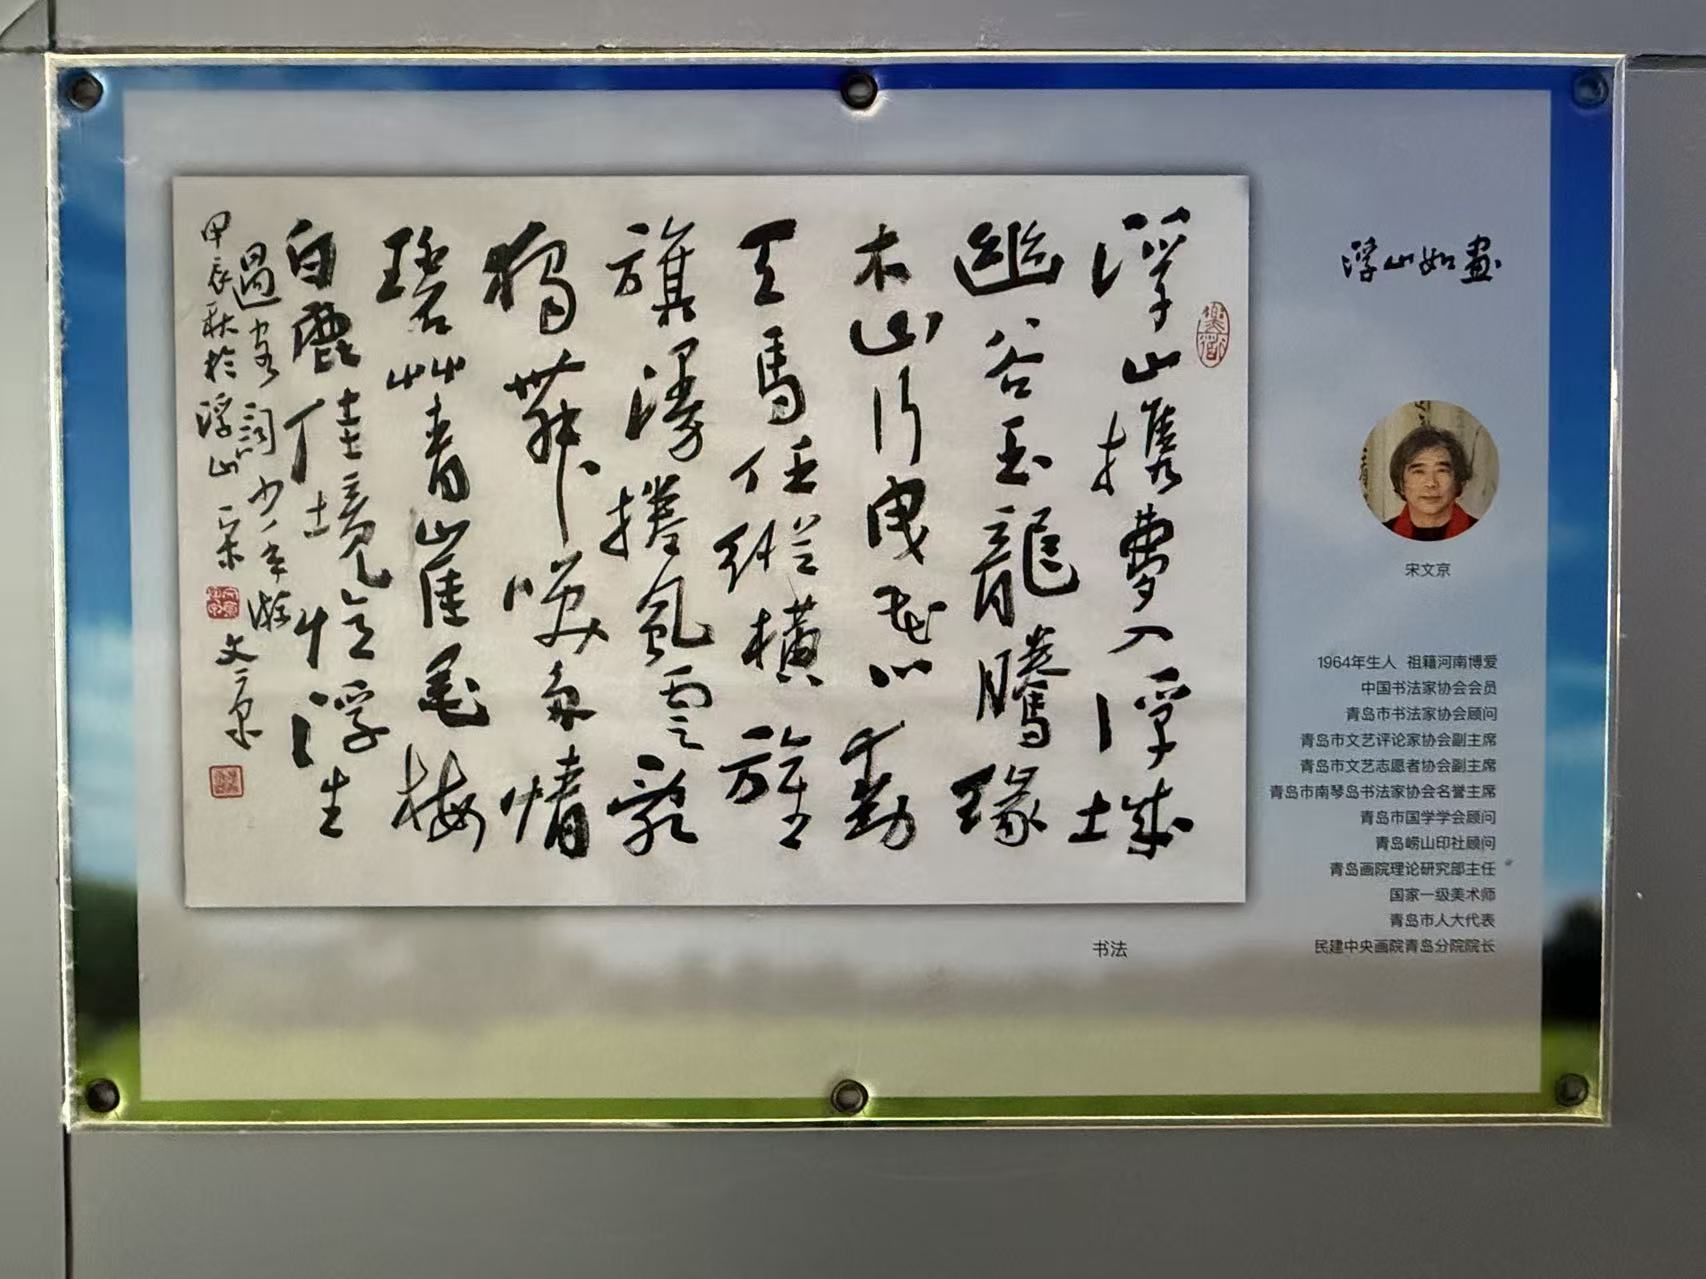 浮山如畫
浮山攜夢入浮城
幽谷玉龍騰緣
木山行曳花心動
天馬任縱橫旌
旗漫捲風雲
獨舞喚情
碧艸青崖毛梅
白鹿佳境憶浮生
詞少年游
甲辰秋於浮山宋文京
书法
宋文京
1964年生人 祖籍河南博爱
中国书法家协会会员
青岛市书法家协会顾问
青岛市文艺评论家协会副主席
青岛市文艺志愿者协会副主席
青岛市南琴岛书法家协会名誉主席
青岛市国学学会顾问
青岛崂山印社顾问
青岛画院理论研究部主任
国家一级美术师
青岛市人大代表
民建中央画院青岛分院院长